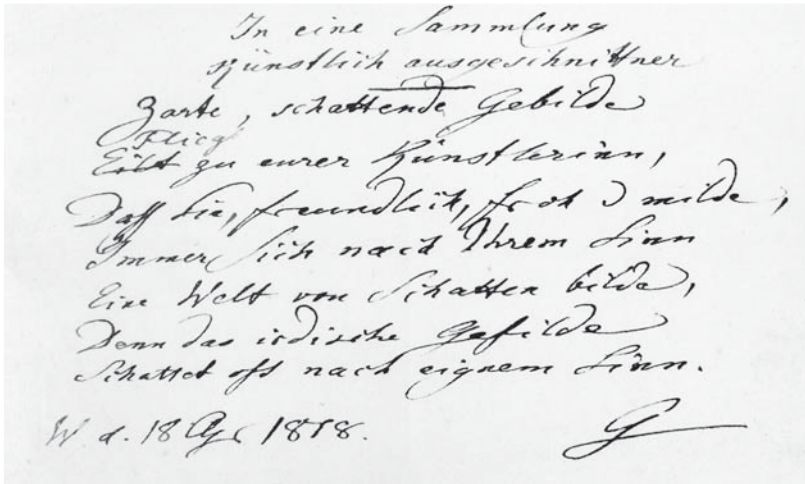 In eine Sammlung
künstlich ausgeschnittner
Zarte, schattende Gebilde
Flieg
Eilt zu eurer Künstlerinn,
Daſſ Sie, freundlich, froh u milde,
Immer Sich nach Ihrem Sinn
Eine Welt von Schatten bilde,
Denn das irdische Gefilde
Schattet oft nach eignem Sinn.
W d. 18 Apr 1818.
G